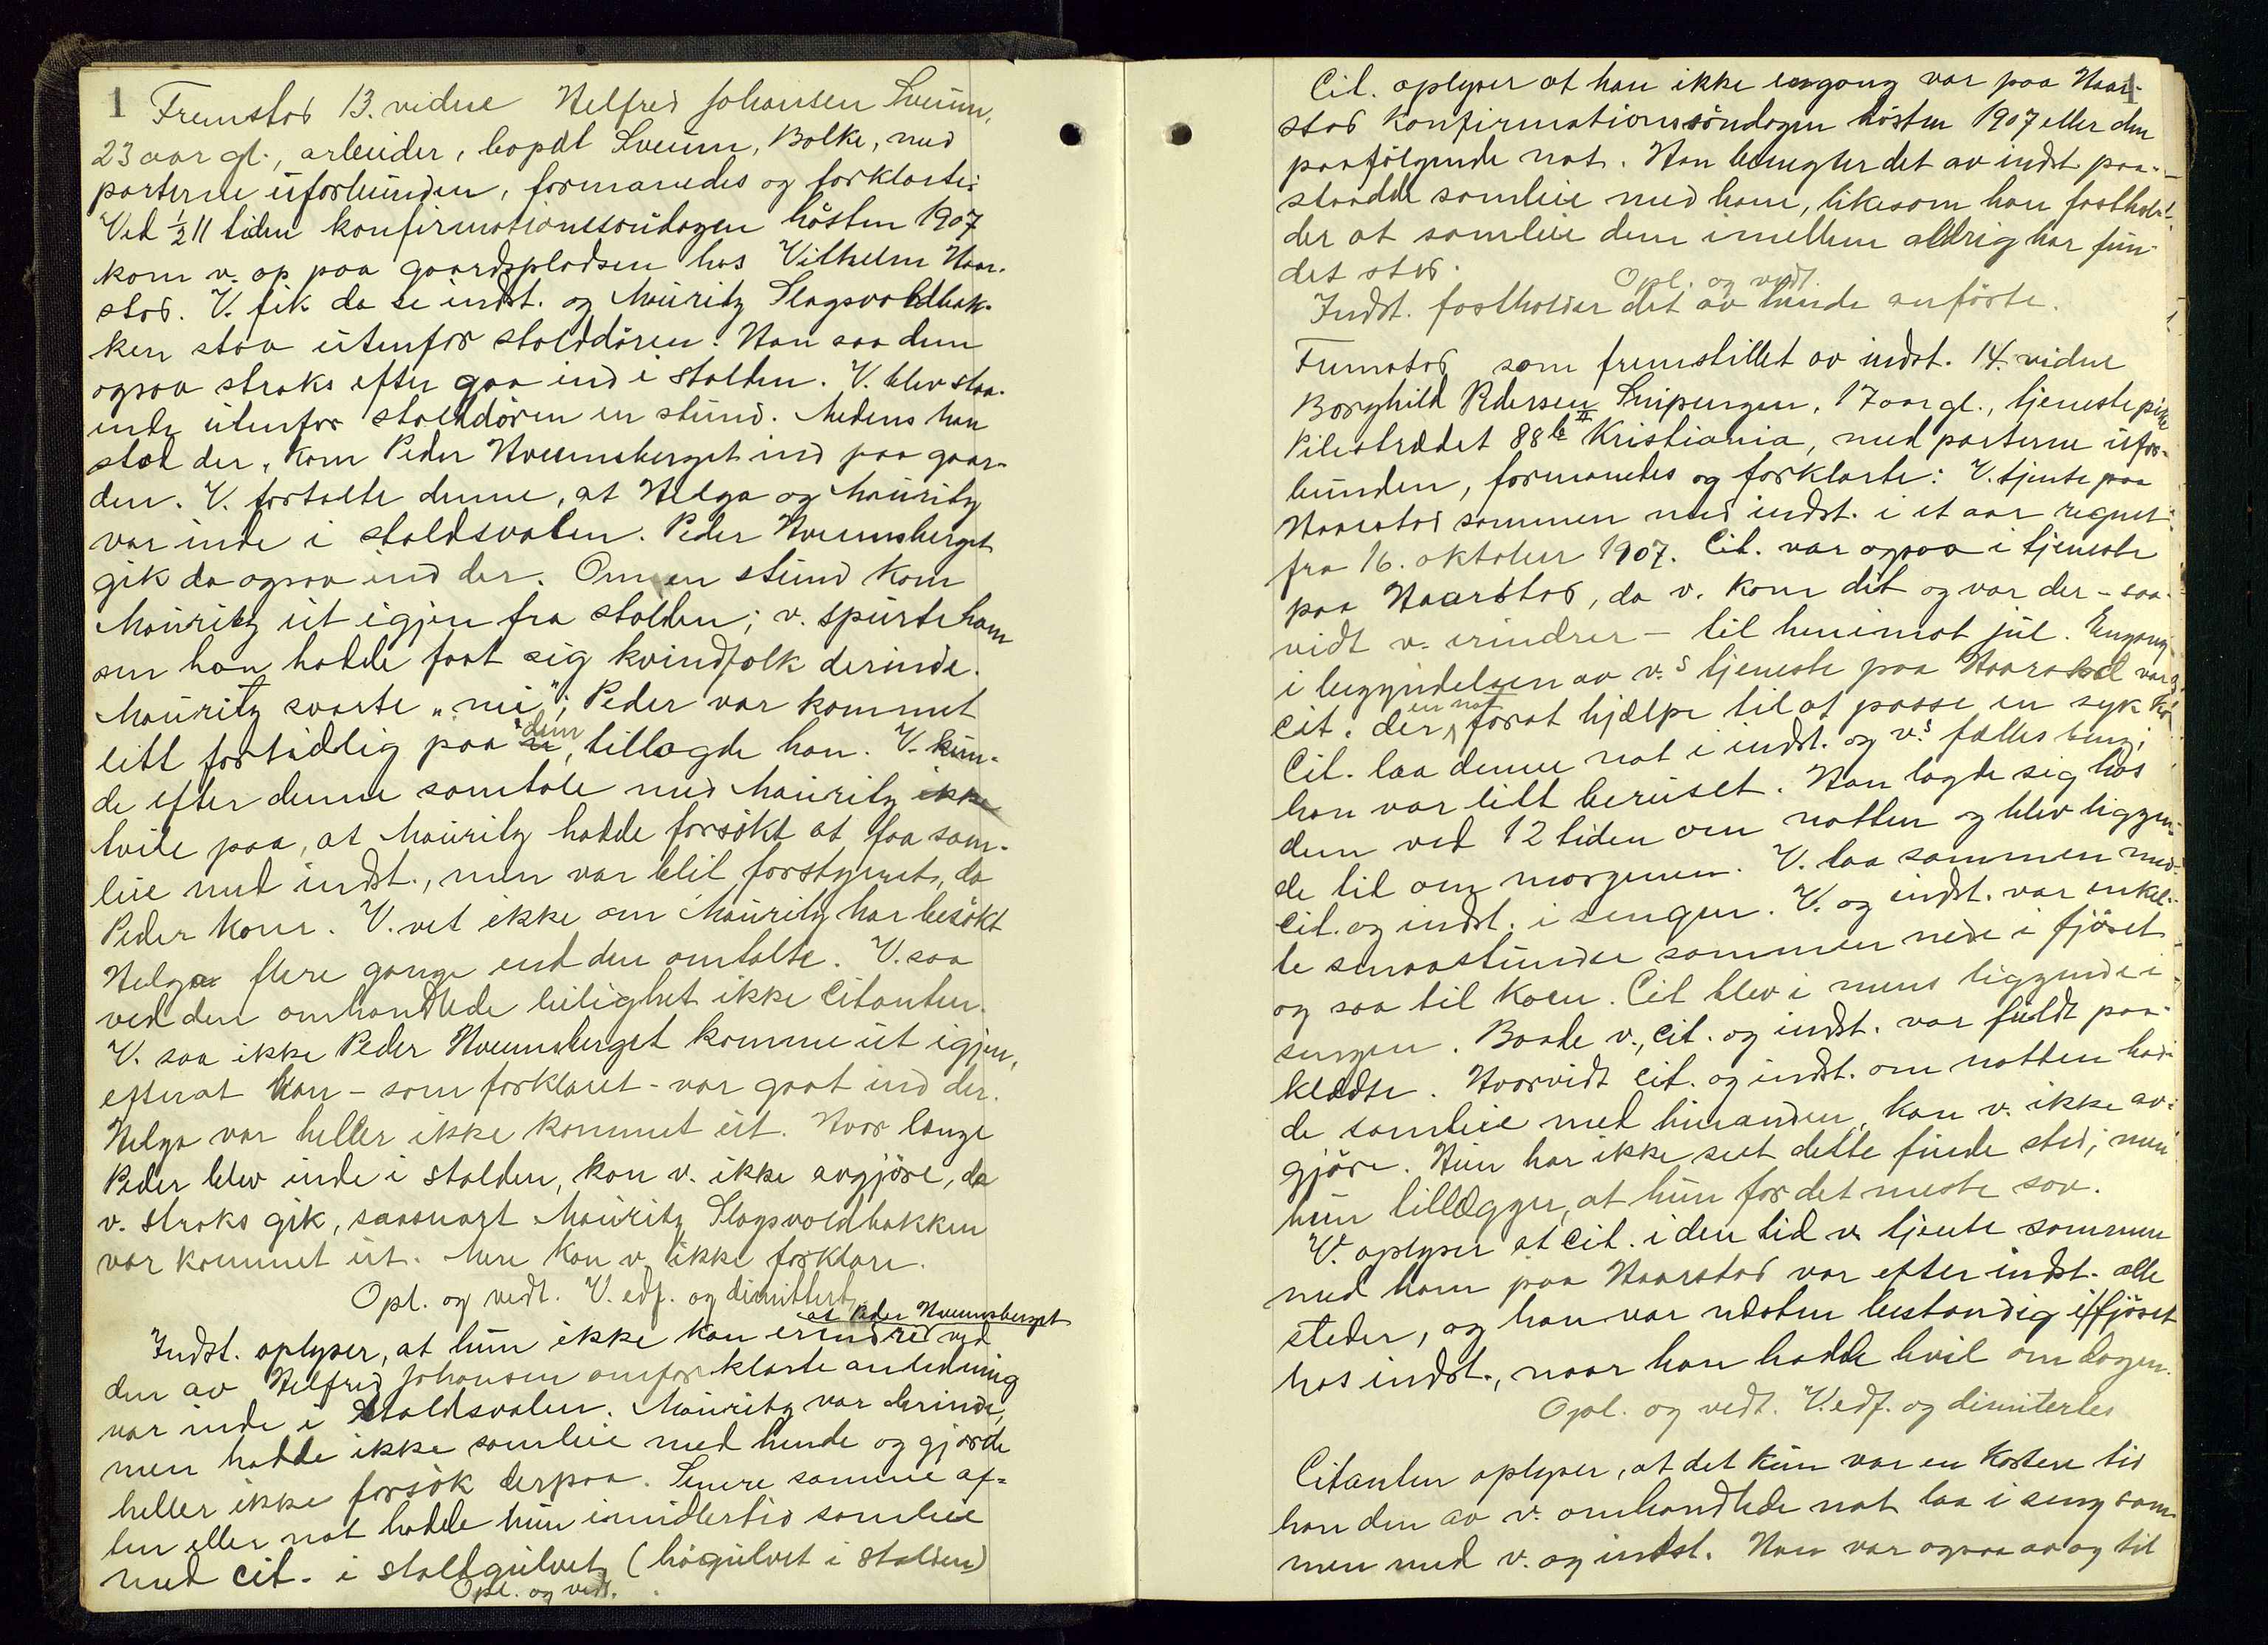 1
Fremstod 13. vidne Helfred Johansen Sveum,
23 aar gl., arbeider, bopæl Sveum, Balke, med
parterne uforbunden, formanedes og forklarte:
Ved ½ 11 tiden konfirmationssöndagen hösten 1907
kom v. op paa gaardspladsen hos Vilhelm Haar-
stad. V. fik da se indst. og Mauritz Slagsvoldbak-
ken staa utenfor stalddören. Han saa dem
ogsaa straks efter gaa ind i stalden. V. blev staa-
ende utenfor stalddören en stund. Medens han
stod der, kom Peder Hveemsberget ind paa gaar-
den. V. fortalte denne, at Helga og Mauritz
var inde i staldsvalen. Peder Hveemsberget
gik da ogsaa ind der. Om en stund kom
Mauritz ut igjen fra stalden; v. spurte ham
om han hadde faat sig kvindfolk derinde.
Mauritz svarte "nei"; Peder var kommet
litt fortidlig paa dem, tillagde han. V. kun-
de efter denne samtale med Mauritz ikke
tvile paa, at Mauritz hadde forsökt at faa sam-
leie med indst., men var blit forstyrret, da
Peder kom. V. vet ikke om Mauritz har besökt
Helga flere gange end den omtalte. V. saa
ved den omhandlede leilighet ikke Citanten.
V. saa ikke Peder Hveemsberget komme ut igjen,
efterat han - som forklaret - var gaat ind der.
Helga var heller ikke kommet ut. Hvor længe
Peder blev inde i stalden, kan v. ikke avgjöre, da
v. straks gik, saasnart Mauritz Slagsvoldbakken
var kommet ut. Mere kan v. ikke forklare.
Opl. og vedt. V. edf. og dimittert.
at Peder Hveemsberget
Indst. oplyser, at hun ikke kan erindre ved
den av Helfred Johansen omforklarte anledning
var inde i staldsvalen. Mauritz var derinde,
men hadde ikke samleie med hende og gjorde
heller ikke forsök derpaa. Senere samme af-
ten eller nat hadde hun imidlertid samleie
med cit. i staldgulvet (högulvet i stalden)
Opl. og vedt.
1
Cit. oplyser at han ikke engang var paa Haar-
stad Konfirmationssöndagen hösten 1907 eller den
paafölgende nat. Han benegter det av indst. paa-
staadde samleie med ham, likesom han fasthol-
der at samleie dem imellem aldrig har fun-
det sted.
Opl. og vedt.
Indst. fastholder det av hende anförte.
Fremstod som fremstillet av indst. 14. vidne
Borghild Pedersen Snipengen, 17 aar gl., tjenestepike
Pilestrædet 88 b II Kristiania, med parterne ufor-
bunden, formanedes og forklarte: V. tjente paa
Haarstad sammen med indst. i et aar regnet
fra 16. oktober 1907. Cit. var ogsaa i tjeneste
paa Haarstad, da v. kom dit og var der - saa-
vidt v. erindrer - til henimot jul. Engang
i begyndelsen av v.s tjeneste paa Haarstad var
cit. der en nat forat hjælpe til at passe en syk ko.
Cit. laa denne nat i indst. og v.s fælles seng;
han var litt beruset. Han lagde sig hos
dem ved 12 tiden om natten og blev liggen-
de til om morgenen. V. laa sammen med
cit. og indst. i sengen. V. og indst. var enkel-
te smaastunder sammen nede i fjöset
og saa til koen. Cit blev i mens liggende i
sengen. Baade v., cit. og indst. var fuldt paa-
klædte. Hvorvidt cit. og indst. om natten had-
de samleie med hinanden, kan v. ikke av-
gjöre. Hun har ikke seet dette finde sted; men
hun tillægger, at hun for det meste sov.
V. oplyser at cit. i den tid v. tjente sammen
med ham paa Haarstad var efter indst. alle
steder, og han var næsten bestandig i fjöset
hos indst., naar han hadde hvil om dagen.
Opl. og vedt. V. edf. og dimiterles
Citanten oplyser, at det kun var en kortere tid
han den av v. omhandlede nat laa i seng sam-
men med v. og indst. Han var ogsaa av og til